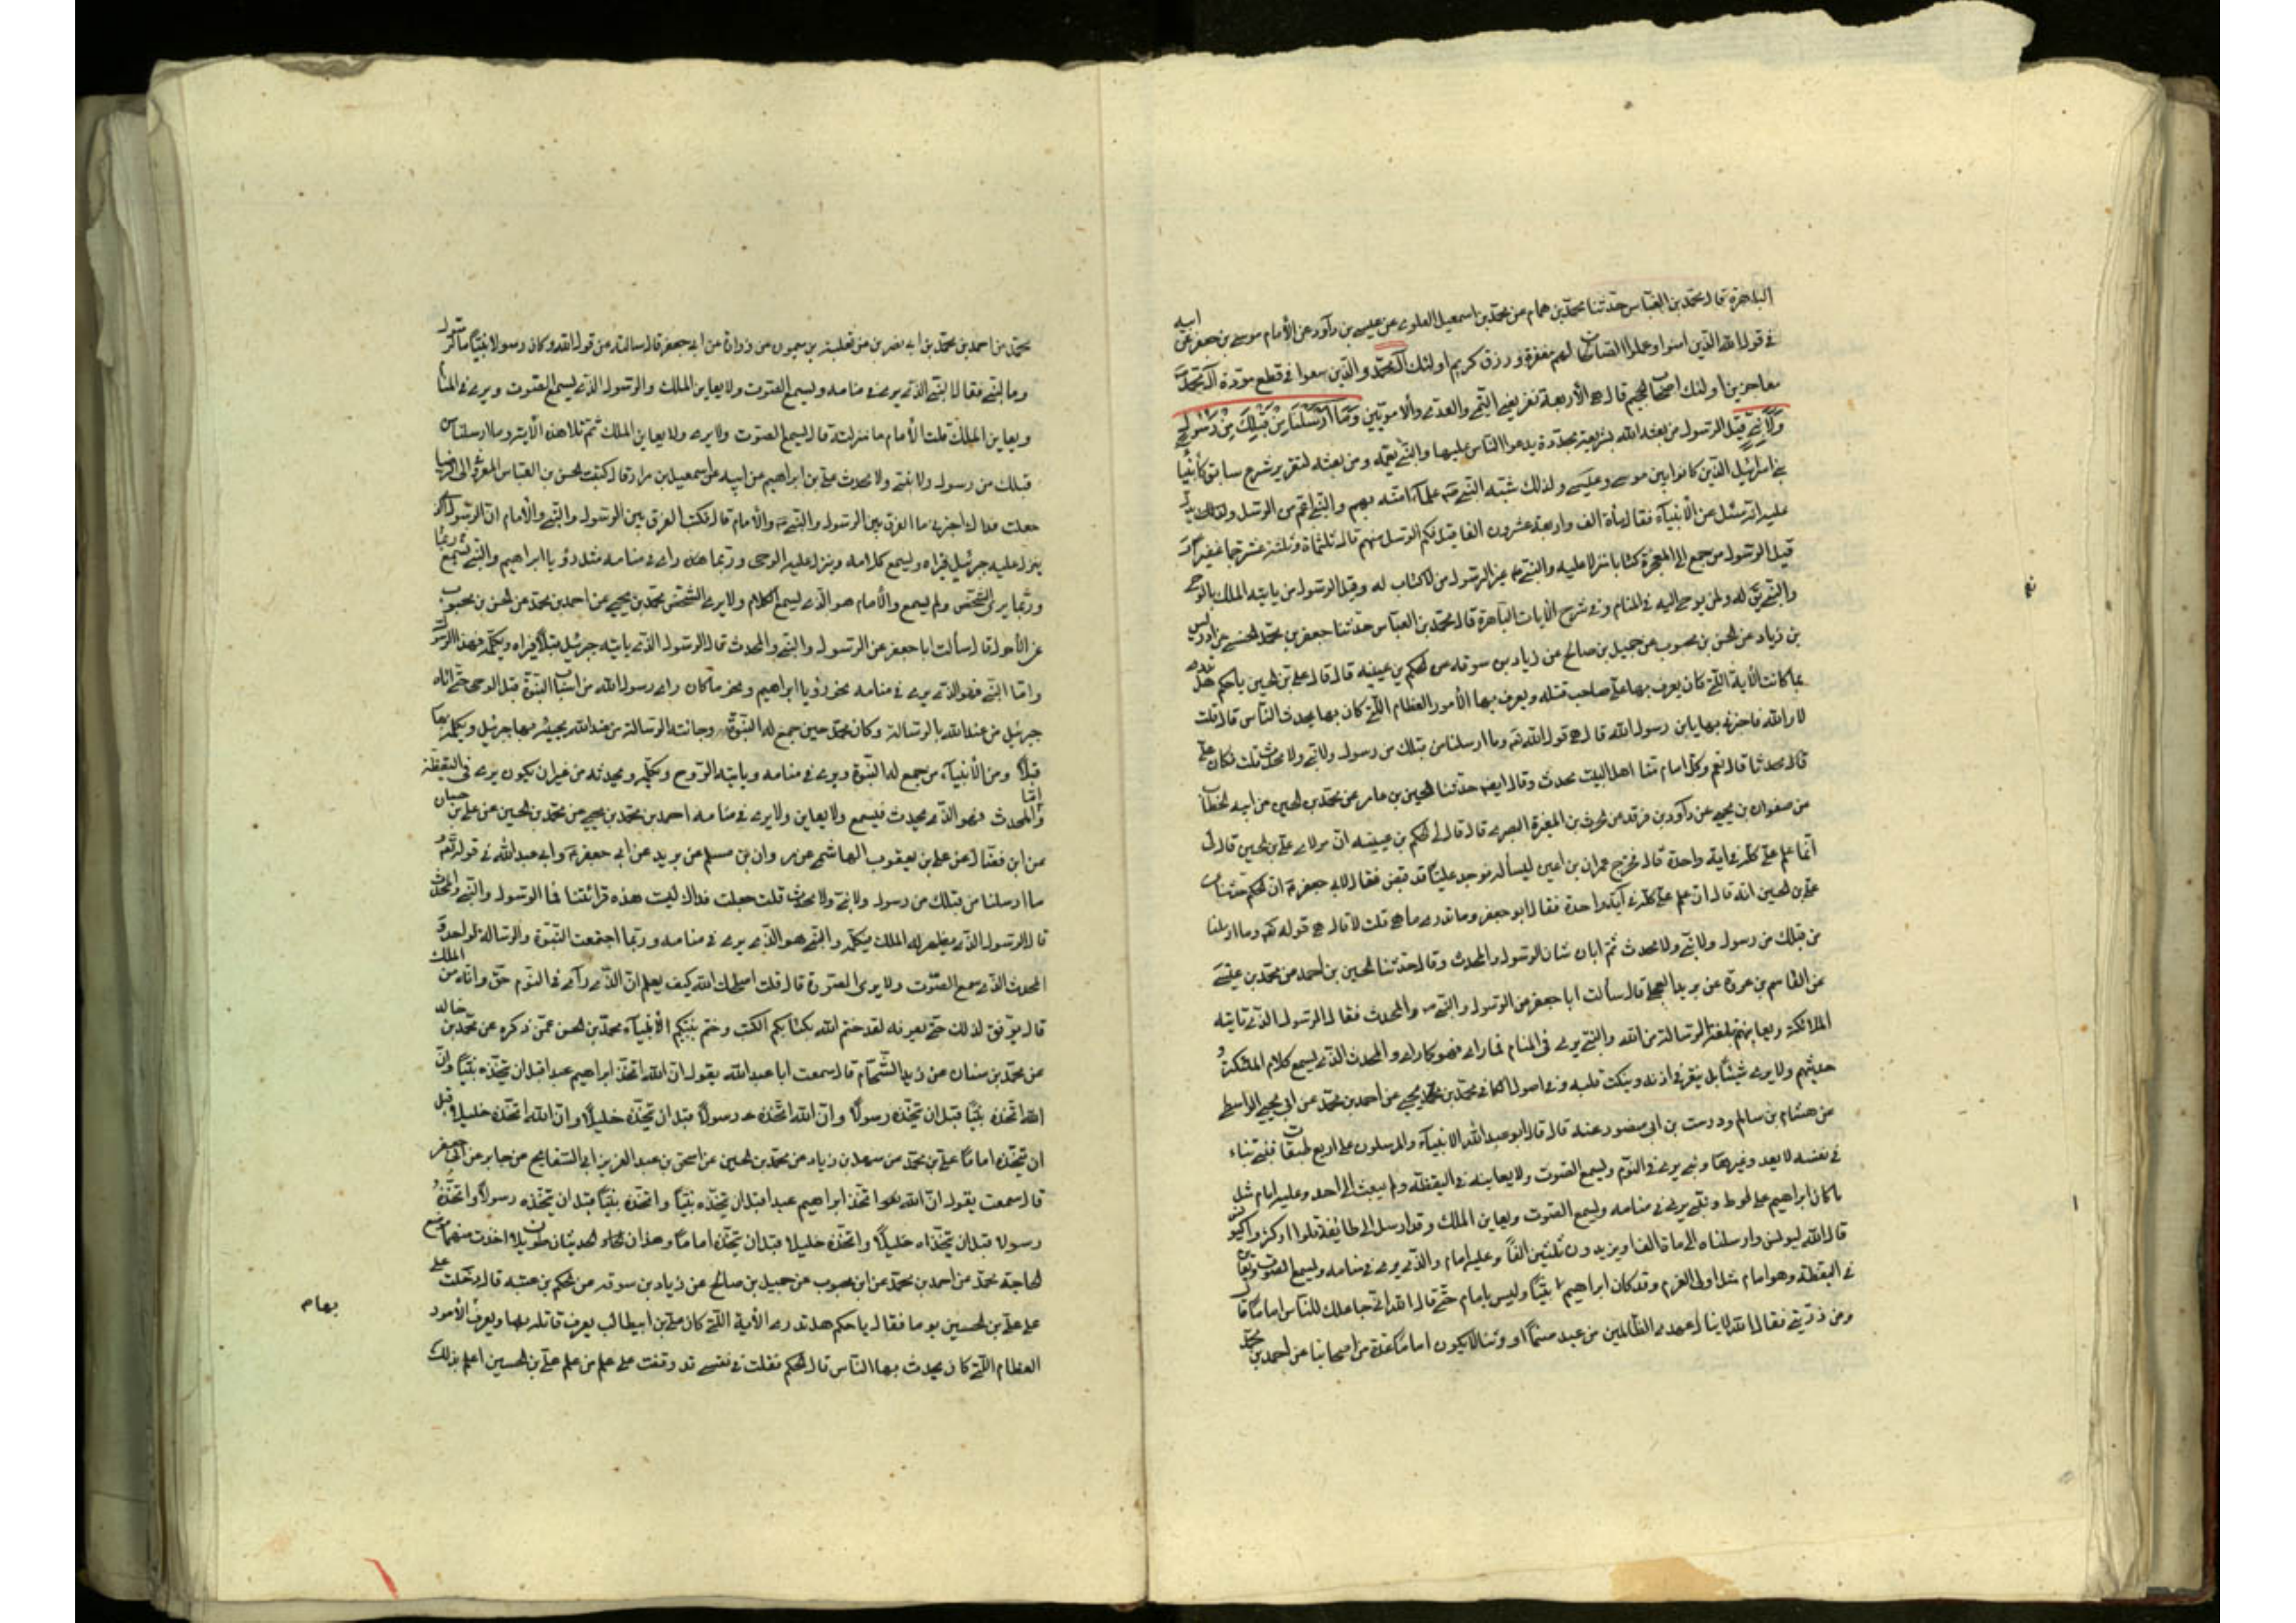 الباهرة قال محمد بن العباس حدثنا محمد بن همام عن محمد بن اسمعيل العلوى عن عيسى بن داود عن الأمام موسى بن جعفر عن ابيه
فى قول الله الذين امنوا وعملوا الصالحات لهم مغفرة ورزق كريم اولئك آل محمد والذين سعوا فى قطع مودة آل محمد
معاجزين اولئك اصحاب الجحيم قال هى الأربعة نفر يعنى التيمى والعدى والأمويين وَمَا أَرْسَلْنَا مِنْ قَبْلِكَ مِنْ رَسُولٍ
وَلَا نَبِيٍّ قيل الرسول من بعثه الله بشريعة مجددة يدعو الناس عليها والنبى يعمه ومن بعثه لتقرير شرع سابق كأنبيا
بنى اسرائيل الذين كانوا بين موسى وعيسى ولذلك شبه النبى علماء امته بهم والنبى اعم من الرسول ويدل
عليه انه سئل عن الأنبياء فقال مأة الف واربعة عشرون الفا قيل فكم الرسل منهم قال ثلثمأة وثلثة عشر جما غفيرا
قيل الرسول من جمع الى المعجزة كتابا منزلا عليه والنبى غير الرسول من لا كتاب له وقيل الرسول من يأتيه الملك بالوحى
والنبى يق له ولمن يوحى اليه فى المنام وفى شرح الايات الباهرة قال محمد بن العباس حدثنا جعفر بن محمد الحسنى عن ادريس
بن زياد عن الحسن بن محبوب عن جميل بن صالح عن زياد بن سوقه عن الحكم بن عيينه قال قال لى على بن الحسين ياحكم هل تدرى
ما كانت الأية التى كان يعرف بها على صاحب قتله ويعرف بها الأمور العظام التى كان بها يحدث الناس قال قلت
لا والله فاخبرنى بها يابن رسول الله قال هى قول الله وما ارسلنا من قبلك من رسول ولا نبى ولا محدث قلت فكان على
قال محدثا قال نعم وكل امام منا اهل البيت محدث وقال ايضه حدثنا الحسين بن عامر عن محمد بن الحسين عن ابيه الخطاب
من صفوان بن يحيى عن داود بن فرقد عن الحرث بن المغيرة البصرى قال قال لى الحكم بن عيينه ان مولاى على بن الحسين قال لى
انما علم على كله فى اية واحدة قال فخرج حمران بن اعين ليسأله فوجد عليا قد قبض فقال لابى جعفر ان الحكم حدثنا عن
على بن الحسين انه قال ان علم على كله فى آية واحدة فقال ابو جعفر وما تدرى ما هى قلت لا قال هى قوله وما ارسلنا
من قبلك من رسول ولا نبى ولا محدث ثم ابان شان الرسول والمحدث وقال حدثنا الحسين بن احمد عن محمد بن عيسى
عن القاسم بن عروة عن بريد العجلى قال سألت ابا جعفر عن الرسول والنبى والمحدث فقال الرسول الذى تأتيه
الملائكة ويعاينهم تبلغه الرسالة من الله والنبى يرى فى المنام فما راى فهو كما راى والمحدث الذى يسمع كلام الملئكة و
حديثهم ولا يرى شيئا بل ينقر فى اذنه وينكت قلبه وفى اصول الكافى محمد بن يحيى عن احمد بن محمد عن ابى يحيى الواسطى
عن هشام بن سالم ودرست بن ابى منصور عنه قال قال ابو عبد الله الانبياء والمرسلون على اربع طبقات فنبى تنباء
فى نفسه لا يعد وغيرها ونبى يرى فى النوم ويسمع الصوت ولا يعاينه فى اليقظة ولم يبعث الى احد وعليه امام مثل
ما كان ابراهيم على لوط ونبى يرى فى منامه ويسمع الصوت ويعاين الملك وقد ارسل الى طائفة قلوا او كثروا كيونس
قال الله ليونس وارسلناه الى مأة الف او يزيدون ثلثين الفا وعليه امام والذى يرى فى منامه ويسمع الصوت ويعاين
فى اليقظة وهو امام مثل اولى العزم وقد كان ابراهيم نبيا وليس بامام حتى قال الله انى جاعلك للناس اماما قال
ومن ذريتى فقال الله لا ينال عهدى الظالمين من عبد صنما او وثنا لا يكون اماما عدة من اصحابنا عن احمد بن محمد
محمد عن احمد بن محمد بن ابى نصر عن ثعلبة بن ميمون عن زرارة عن ابى جعفر قال سالته عن قول الله وكان رسولا نبيا ما الرسول
وما النبى فقال النبى الذى يرى فى منامه ويسمع الصوت ولا يعاين الملك والرسول الذى يسمع الصوت ويرى فى المنام
ويعاين الملك قلت الأمام ما منزلته قال يسمع الصوت ولا يرى ولا يعاين الملك ثم تلا هذه الأية وما ارسلنا من
قبلك من رسول ولا نبى ولا محدث على بن ابراهيم عن ابيه عن اسمعيل بن مرار قال كتب الحسن بن العباس المعروفى الى الرضا
جعلت فداك اخبرنى ما الفرق بين الرسول والنبى والأمام قال فكتب الفرق بين الرسول والنبى والأمام ان الرسول الذى
ينزل عليه جبرئيل فيراه ويسمع كلامه وينزل عليه الوحى وربما راى فى منامه مثل رؤيا ابراهيم والنبى ربما يسمع
وربما يرى الشخص ولم يسمع والأمام هو الذى يسمع الكلام ولا يرى الشخص محمد بن يحيى عن احمد بن محمد عن الحسن بن محبوب
عن الأحول قال سألت ابا جعفر عن الرسول والنبى والمحدث قال الرسول الذى يأتيه جبرئيل قبلا فيراه ويكلمه فهذا الرسول
واما النبى فهو الذى يرى فى منامه نحو رؤيا ابراهيم ونحو ماكان راى رسول الله من اسباب النبوة قبل الوحى حتى اتاه
جبرئيل من عند الله بالرسالة وكان محمد حين جمع له النبوة وجائته الرسالة من عند الله يجيئه بها جبرئيل ويكلمه بها
قبلا ومن الأنبياء من جمع له النبوة ويرى فى منامه ويأتيه الروح ويكلمه ويحدثه من غير ان يكون يرى فى اليقظة
واما المحدث فهو الذى يحدث فيسمع ولا يعاين ولا يرى فى منامه احمد بن محمد بن يحيى عن محمد بن الحسين عن على بن حسان
عن ابن فضال عن على بن يعقوب الهاشمى عن مروان بن مسلم عن بريد عن ابى جعفر وابى عبد الله فى قوله
ما ارسلنا من قبلك من رسول ولا نبى ولا محدث قلت جعلت فداك ليست هذه قرائتنا فما الرسول والنبى والمحدث
قال الرسول الذى يظهر له الملك فيكلمه والنبى هو الذى يرى فى منامه وربما اجتمعت النبوة والرسالة لواحد و
المحدث الذى يسمع الصوت ولا يرى الصورة قال قلت اصلحك الله كيف يعلم ان الذى رآى فى النوم حق وانه من الملك
قال يوفق لذلك حتى يعرفه لقد ختم الله بكتابكم الكتب وختم بنبيكم الأنبياء محمد بن الحسن عمن ذكره عن محمد بن خالد
عن محمد بن سنان عن زيد الشحام قال سمعت ابا عبد الله يقول ان الله اتخذ ابراهيم عبدا قبل ان يتخذه نبيا وان
الله اتخذه نبيا قبل ان يتخذه رسولا وان الله اتخذه رسولا قبل ان يتخذه خليلا وان الله اتخذه خليلا قبل
ان يتخذه اماما على بن محمد عن سهل بن زياد عن محمد بن الحسين عن اسحق بن عبد العزيز ابى السفاتج عن جابر عن ابى جعفر
قال سمعت يقول ان الله اتخذ ابراهيم عبدا قبل ان يتخذه نبيا واتخذه نبيا قبل ان يتخذه رسولا واتخذه
رسولا قبل ان يتخذه خليلا واتخذه خليلا قبل ان يتخذه اماما وهذان الحديثان طويلان اخذت منهما موضع
الحاجة محمد عن احمد بن محمد عن ابن محبوب عن جميل بن صالح عن زياد بن سوقه عن الحكم بن عتيبه قال دخلت على
على على بن الحسين يوما فقال ياحكم هل تدرى الأية التى كان على بن ابيطالب يعرف قاتله بها ويعرف الأمور
العظام التى كان يحدث بها الناس قال الحكم فقلت فى نفسى قد وقفت على علم من علم على بن الحسين اعلم بذلك
بهام